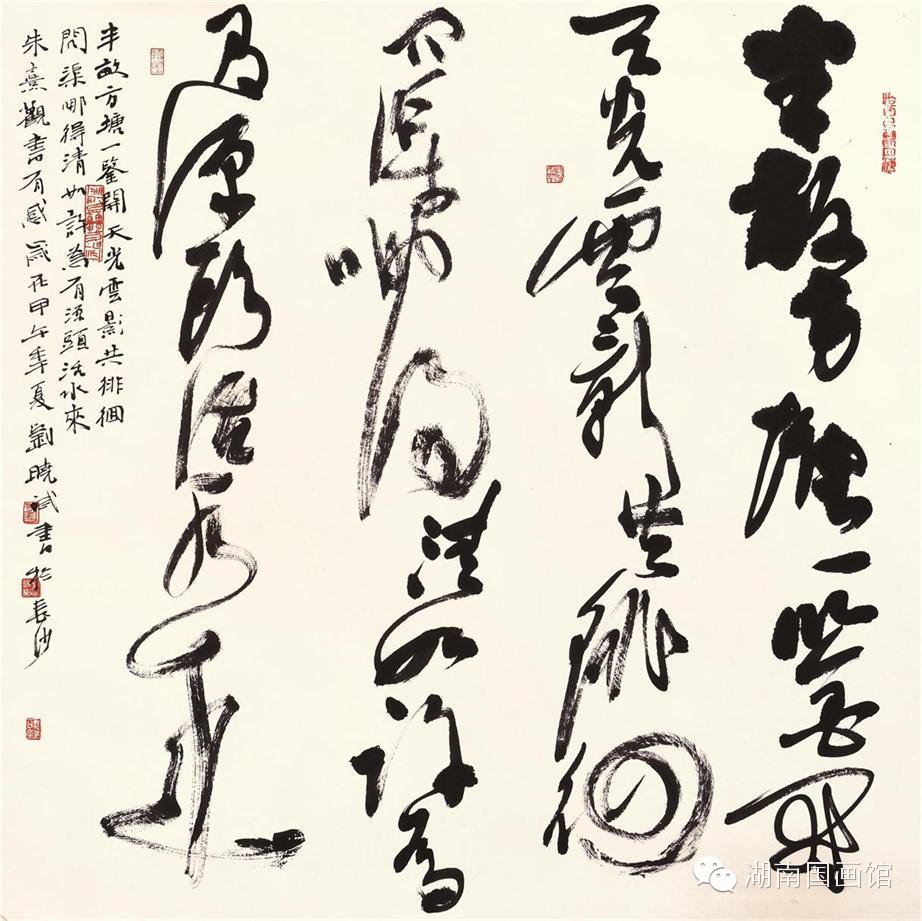 半畝方塘一鑒開
天光雲影共徘徊
問渠哪得清如許為
有源頭活水來
半畝方塘一鑒開天光雲影共徘徊
問渠哪得清如許為有源頭活水來
朱熹觀書有感歲在甲午季夏劉曉書於長沙
湖南国画馆